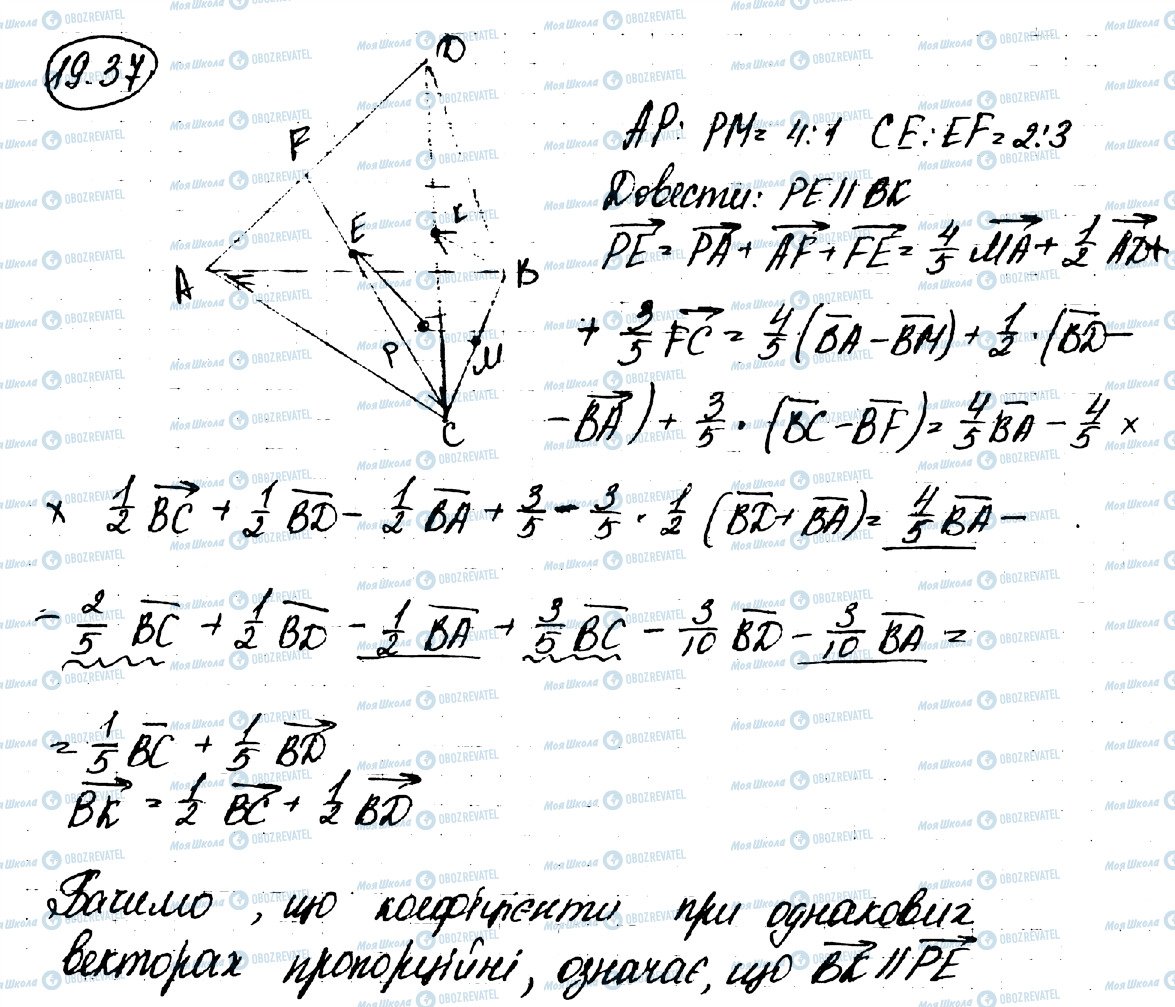 19.37
D
F
E
K
A
B
P
M
C
AP: PM = 4:1 CE:EF = 2:3
Довести: PE || BK
PE = PA + AF + FE = 4/5 MA + 1/2 AD +
+ 3/5 FC = 4/5 (BA - BM) + 1/2 · (BD -
- BA) + 3/5 · (BC - BF) = 4/5 BA - 4/5 ×
× 1/2 BC + 1/2 BD - 1/2 BA + 3/5 - 3/5 · 1/2 (BD + BA) = 4/5 BA -
- 2/5 BC + 1/2 BD - 1/2 BA + 3/5 BC - 3/10 BD - 3/10 BA =
= 1/5 BC + 1/5 BD
BK = 1/2 BC + 1/2 BD
Бачимо, що коефіцієнти при однакових
векторах пропорційні, означає, що BK || PE
Моя Школа OBOZREVATEL